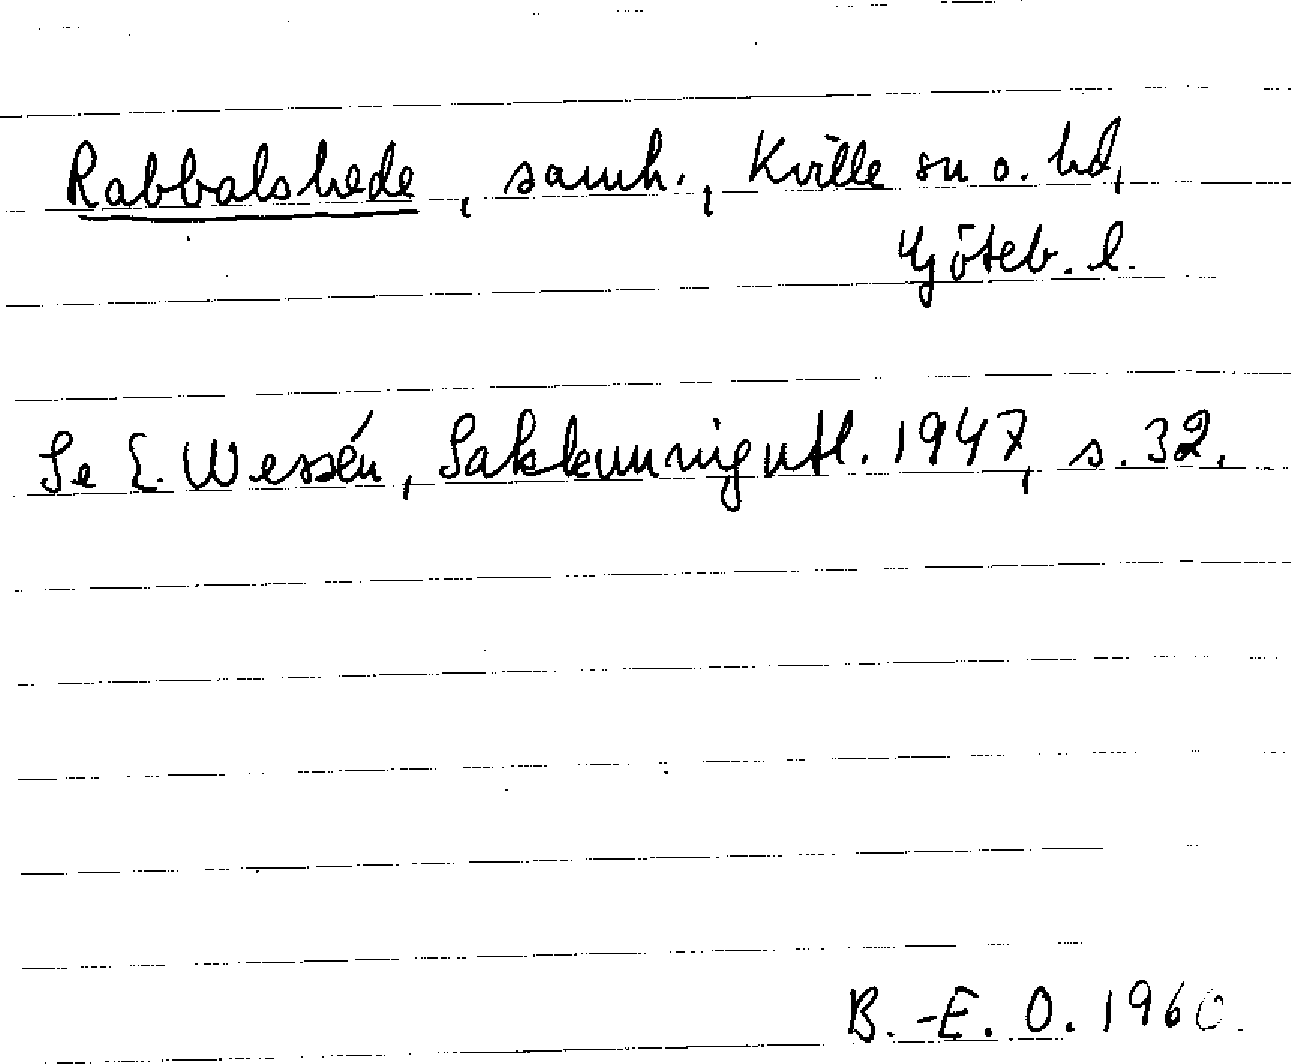 Rabbalshede, samh., Kville sn o. hd,
Göteb. l.
Se E. Wessén, Sakkunnigutl. 1947, s. 32.
B.-E. O. 1960.